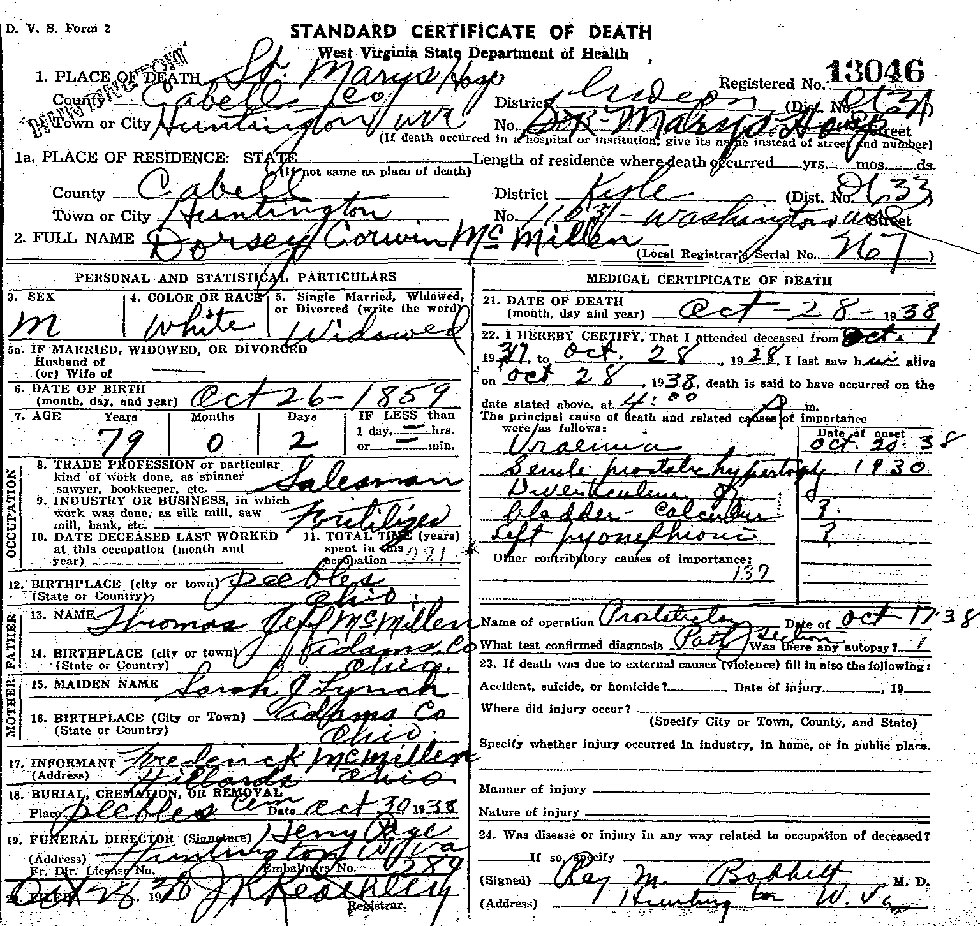 D. V. S. Form 2
STANDARD CERTIFICATE OF DEATH
West Virginia State Department of Health
1. PLACE OF DEATH St. Marys Hosp
Registered No. 13046
County Cabell Co
District (Dist. No.
Town or City Huntington W Va
No. St. Marys Hosp Street
(If death occurred in a hospital or institution, give its name instead of street and number)
1a. PLACE OF RESIDENCE: STATE
Length of residence where death occurred yrs. mos. ds.
(If not same as place of death)
County Cabell
District Kyle (Dist. No. 0633
Town or City Huntington
No. Washington Ave Street
2. FULL NAME Dorsey Corwin McMillen
(Local Registrar's Serial No. 267)
PERSONAL AND STATISTICAL PARTICULARS
3. SEX M
4. COLOR OR RACE White
5. Single Married, Widowed, or Divorced (write the word) Widowed
5a. IF MARRIED, WIDOWED, OR DIVORCED
Husband of
(or) Wife of
6. DATE OF BIRTH (month, day, and year) Oct 26 - 1859
7. AGE Years Months Days IF LESS than
79 0 2 1 day, — hrs. or — min.
OCCUPATION
8. TRADE PROFESSION or particular kind of work done, as spinner sawyer, bookkeeper, etc. Salesman
9. INDUSTRY OR BUSINESS, in which work was done, as silk mill, saw mill, bank, etc. Fertilizer
10. DATE DECEASED LAST WORKED at this occupation (month and year)
11. TOTAL TIME (years) spent in this occupation
12. BIRTHPLACE (city or town) Peebles
(State or Country) Ohio
FATHER
13. NAME Thomas Jeff McMillen
14. BIRTHPLACE (city or town) Adams Co
(State or Country) Ohio
MOTHER
15. MAIDEN NAME Sarah J Lynch
16. BIRTHPLACE (City or Town) Adams Co
(State or Country) Ohio
17. INFORMANT Frederick McMillen
(Address) Hillards Ohio
18. BURIAL, CREMATION, OR REMOVAL
Place Peebles Cem Date Oct 30 1938
19. FUNERAL DIRECTOR (Signature) Henry Page
(Address) Huntington W Va
Fr. Dir. License No. Embalmers No. 289
Oct 28 19
Registrar.
MEDICAL CERTIFICATE OF DEATH
21. DATE OF DEATH (month, day and year) Oct - 28 - 1938
22. I HEREBY CERTIFY, That I attended deceased from Oct. 1
1937 to Oct. 28, 1938 I last saw him alive
on Oct 28, 1938, death is said to have occurred on the
date stated above, at 4:00 P m.
The principal cause of death and related causes of importance were as follows:
Date of onset
Uraemia Oct 20 38
Senile prostatic hypertrophy 1930
Diverticulum of
bladder - calculus ?
Left pyonephrosis ?
Other contributory causes of importance:
137
Name of operation Date of Oct 17 38
What test confirmed diagnosis Path section Was there any autopsy?
23. If death was due to external causes (violence) fill in also the following:
Accident, suicide, or homicide? Date of injury , 19
Where did injury occur?
(Specify City or Town, County, and State)
Specify whether injury occurred in industry, in home, or in public place.
Manner of injury
Nature of injury
24. Was disease or injury in any way related to occupation of deceased?
If so, specify
(Signed) Ray M. Bobbitt M. D.
(Address) Huntington W. Va